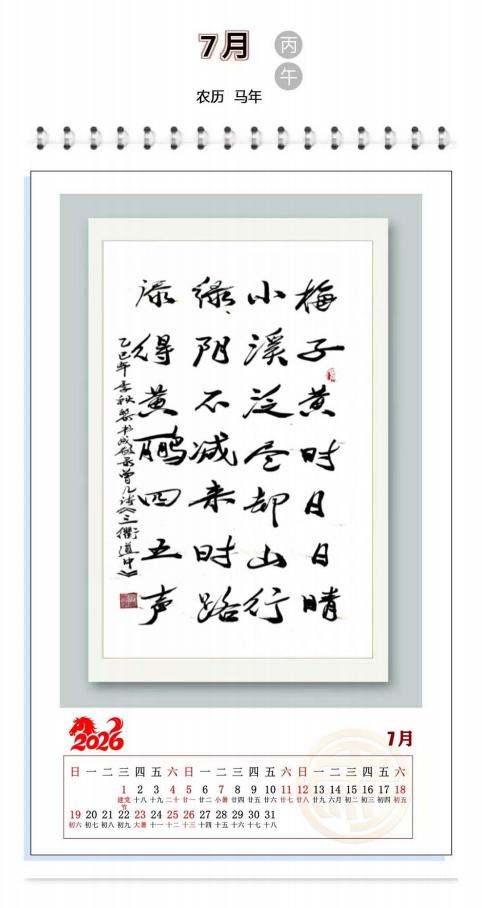 7月
丙午
农历 马年
梅子黄时日日晴
小溪泛尽却山行
绿阴不减来时路
添得黄鹂四五声
乙巳年季秋 书 录曾几诗《三衢道中》
2026
7月
日 一 二 三 四 五 六 日 一 二 三 四 五 六 日 一 二 三 四 五 六
1 2 3 4 5 6 7 8 9 10 11 12 13 14 15 16 17 18
建党节 十八 十九 二十 廿一 廿二 小暑 廿四 廿五 廿六 廿七 廿八 廿九 六月 初二 初三 初四 初五
19 20 21 22 23 24 25 26 27 28 29 30 31
初六 初七 初八 初九 大暑 十一 十二 十三 十四 十五 十六 十七 十八